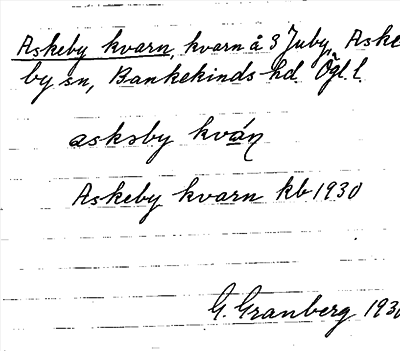 Askeby kvarn, kvarn å 3 Juby, Aske
by sn, Bankekinds hd. Ögl. l.
askəby kvɑ́ɳ
Askeby kvarn kb 1930
G. Granberg 1930